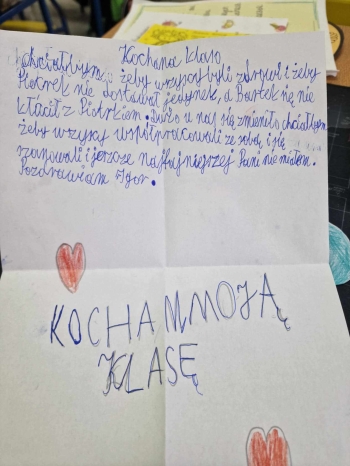 Kochana Klaso
chciałbym, żeby wszyscy byli zdrowi i żeby
Piotrek nie dostawał jedynek, a Bartek się nie
kłócił z Piotrkiem. Dużo u nas się zmieniło chciałbym
żeby wszyscy współpracowali ze sobą i się
szanowali i jeszcze najfajniejszej Pani nie miałem.
Pozdrawiam Igor.
KOCHAM MOJĄ
KLASĘ